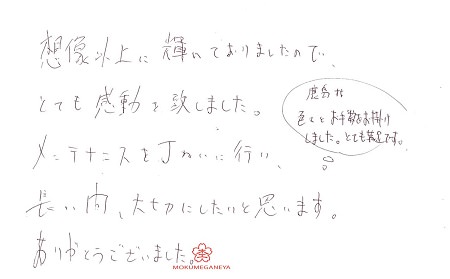 想像以上に輝いておりましたので、
とても感動を致しました。
メンテナンスを丁ねいに行い、
長い間、大切にしたいと思います。
ありがとうございました。
鹿島様
色々とお手数をお掛け
しました。とても満足です。
MOKUMEGANEYA